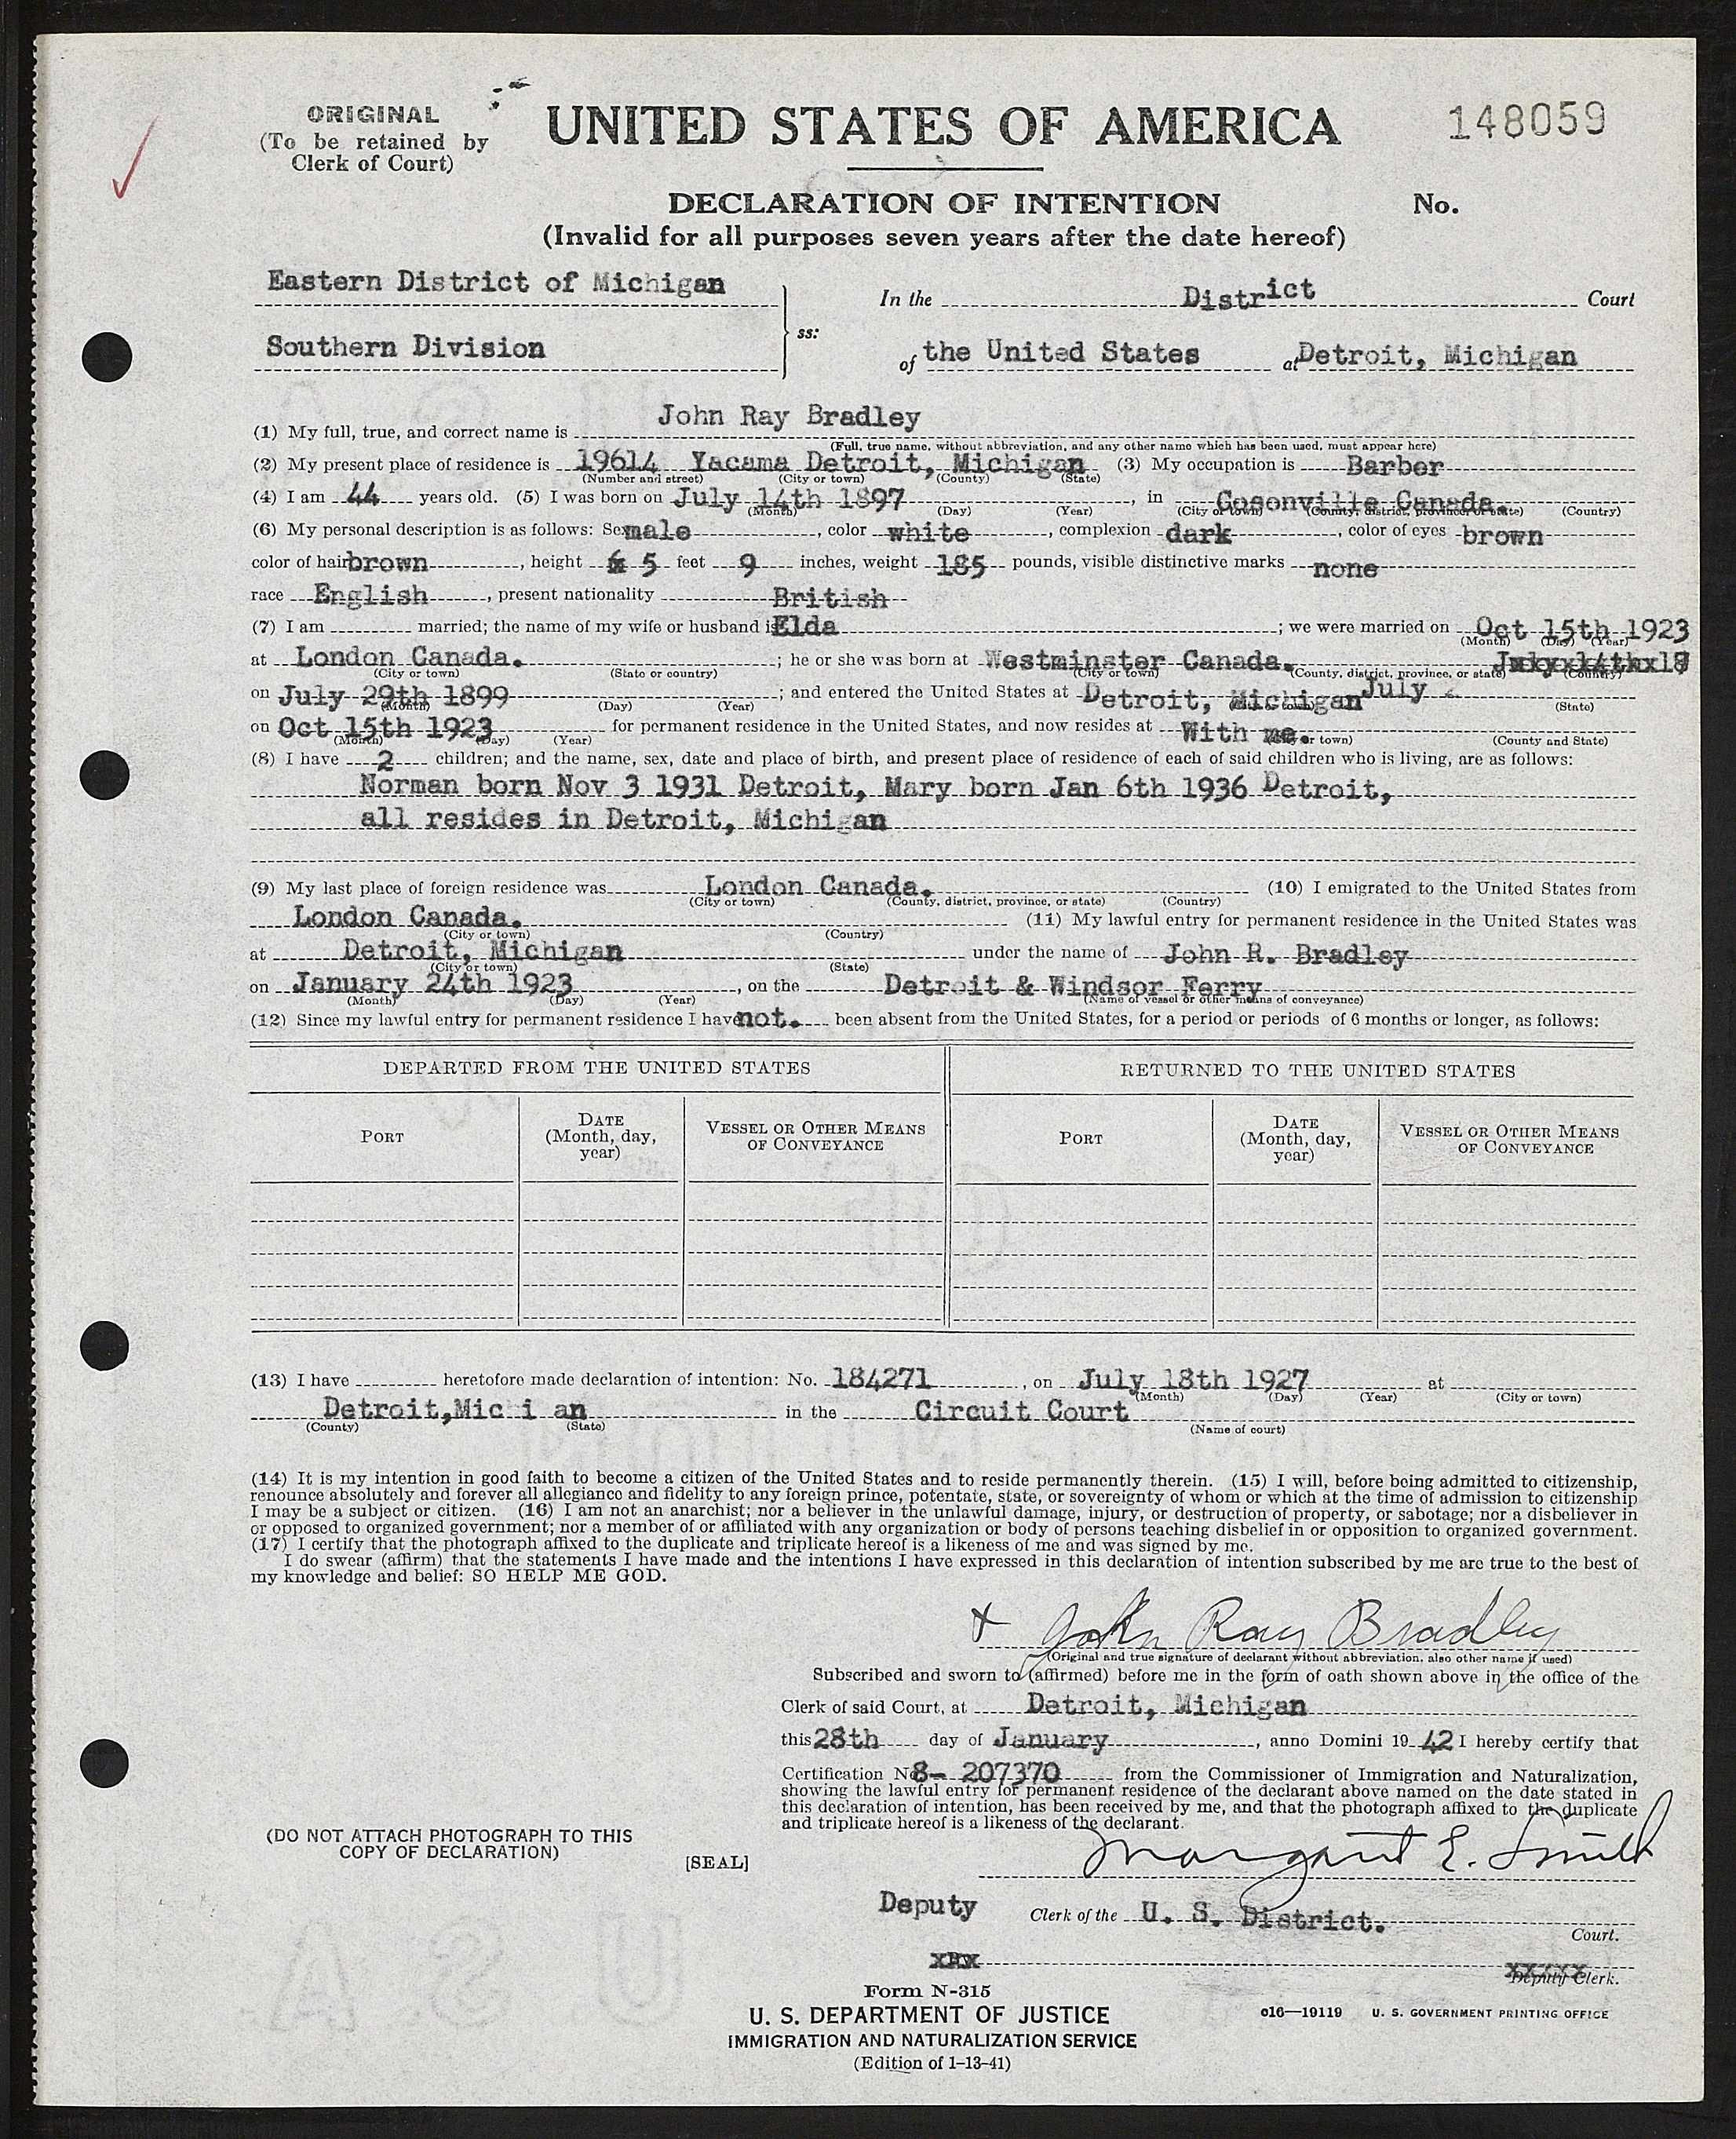 ORIGINAL
(To be retained by
Clerk of Court)
UNITED STATES OF AMERICA
148059
DECLARATION OF INTENTION
No.
(Invalid for all purposes seven years after the date hereof)
Eastern District of Michigan
In the District Court
Southern Division
ss:
of the United States at Detroit, Michigan
(1) My full, true, and correct name is John Ray Bradley
(Full, true name, without abbreviation, and any other name which has been used, must appear here)
(2) My present place of residence is 19614 Yacama Detroit, Michigan (3) My occupation is Barber
(Number and street) (City or town) (County) (State)
(4) I am 44 years old. (5) I was born on July 14th 1897, in Cosonville Canada.
(Month) (Day) (Year) (City or town) (County, district, province, or state) (Country)
(6) My personal description is as follows: Sex male, color white, complexion dark, color of eyes brown
color of hair brown, height 5 feet 9 inches, weight 185 pounds, visible distinctive marks none
race English, present nationality British
(7) I am married; the name of my wife or husband is Elda; we were married on Oct 15th 1923
(Month) (Day) (Year)
at London Canada.; he or she was born at Westminster Canada.
(City or town) (State or country) (City or town) (County, district, province, or state) (Country)
on July 29th 1899; and entered the United States at Detroit, Michigan July
(Month) (Day) (Year) (City or town) (State)
on Oct 15th 1923 for permanent residence in the United States, and now resides at With me.
(Month) (Day) (Year) (City or town) (County and State)
(8) I have 2 children; and the name, sex, date and place of birth, and present place of residence of each of said children who is living, are as follows:
Norman born Nov 3 1931 Detroit, Mary born Jan 6th 1936 Detroit,
all resides in Detroit, Michigan
(9) My last place of foreign residence was London Canada. (10) I emigrated to the United States from
(City or town) (County, district, province, or state) (Country)
London Canada. (11) My lawful entry for permanent residence in the United States was
(City or town) (Country)
at Detroit, Michigan under the name of John R. Bradley
(City or town) (State)
on January 24th 1923, on the Detroit & Windsor Ferry
(Month) (Day) (Year) (Name of vessel or other means of conveyance)
(12) Since my lawful entry for permanent residence I have not. been absent from the United States, for a period or periods of 6 months or longer, as follows:
DEPARTED FROM THE UNITED STATES RETURNED TO THE UNITED STATES
PORT DATE (Month, day, year) VESSEL OR OTHER MEANS OF CONVEYANCE PORT DATE (Month, day, year) VESSEL OR OTHER MEANS OF CONVEYANCE
(13) I have heretofore made declaration of intention: No. 184271, on July 18th 1927 at
(Month) (Day) (Year) (City or town)
Detroit,Mic i an in the Circuit Court
(County) (State) (Name of court)
(14) It is my intention in good faith to become a citizen of the United States and to reside permanently therein. (15) I will, before being admitted to citizenship,
renounce absolutely and forever all allegiance and fidelity to any foreign prince, potentate, state, or sovereignty of whom or which at the time of admission to citizenship
I may be a subject or citizen. (16) I am not an anarchist; nor a believer in the unlawful damage, injury, or destruction of property, or sabotage; nor a disbeliever in
or opposed to organized government; nor a member of or affiliated with any organization or body of persons teaching disbelief in or opposition to organized government.
(17) I certify that the photograph affixed to the duplicate and triplicate hereof is a likeness of me and was signed by me.
I do swear (affirm) that the statements I have made and the intentions I have expressed in this declaration of intention subscribed by me are true to the best of
my knowledge and belief: SO HELP ME GOD.
x John Ray Bradley
(Original and true signature of declarant without abbreviation, also other name if used)
Subscribed and sworn to (affirmed) before me in the form of oath shown above in the office of the
Clerk of said Court, at Detroit, Michigan
this 28th day of January, anno Domini 1942 I hereby certify that
Certification No 8- 207370 from the Commissioner of Immigration and Naturalization,
showing the lawful entry for permanent residence of the declarant above named on the date stated in
this declaration of intention, has been received by me, and that the photograph affixed to the duplicate
and triplicate hereof is a likeness of the declarant.
(DO NOT ATTACH PHOTOGRAPH TO THIS
COPY OF DECLARATION)
[SEAL]
Margaret E. Smith
Deputy Clerk of the U. S. District. Court.
Deputy Clerk.
Form N-315
U. S. DEPARTMENT OF JUSTICE
IMMIGRATION AND NATURALIZATION SERVICE
(Edition of 1-13-41)
c16—19119 U. S. GOVERNMENT PRINTING OFFICE